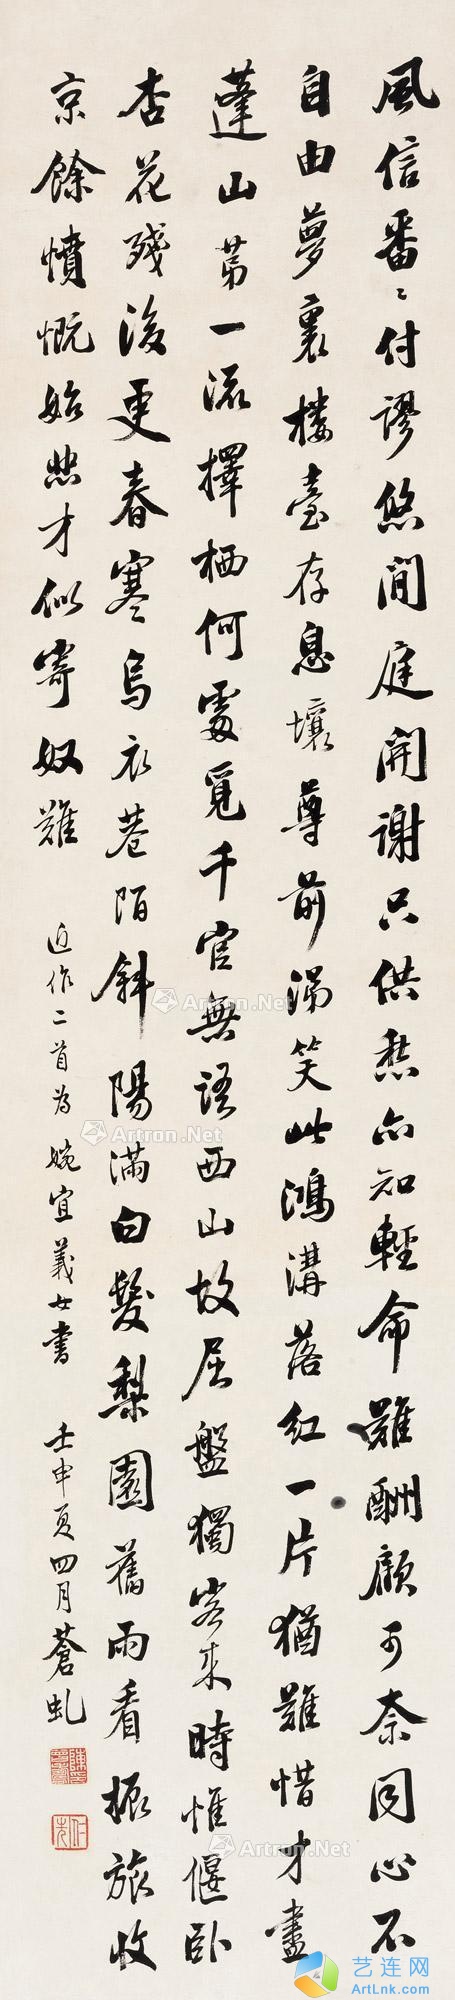 風信番番付謬悠閒庭開謝只供愁亦知輕命難酬顧可奈同心不
自由夢裏樓臺存息壤尊前涕笑此鴻溝落紅一片猶難惜才盡
蓬山第一流擇栖何處覓千官無語西山故屈盤獨客來時惟偃臥
杏花殘後更春寒烏衣巷陌斜陽滿白髮梨園舊雨看振旅收
京餘憤慨始悲才似寄奴難
近作二首為婉宜義女書
壬申夏四月蒼虬
Artron.Net
Artron.Net
Artron.Net
Artron.Net
Artron.Net
Artron.Net
艺连网
ArtLnk.Com